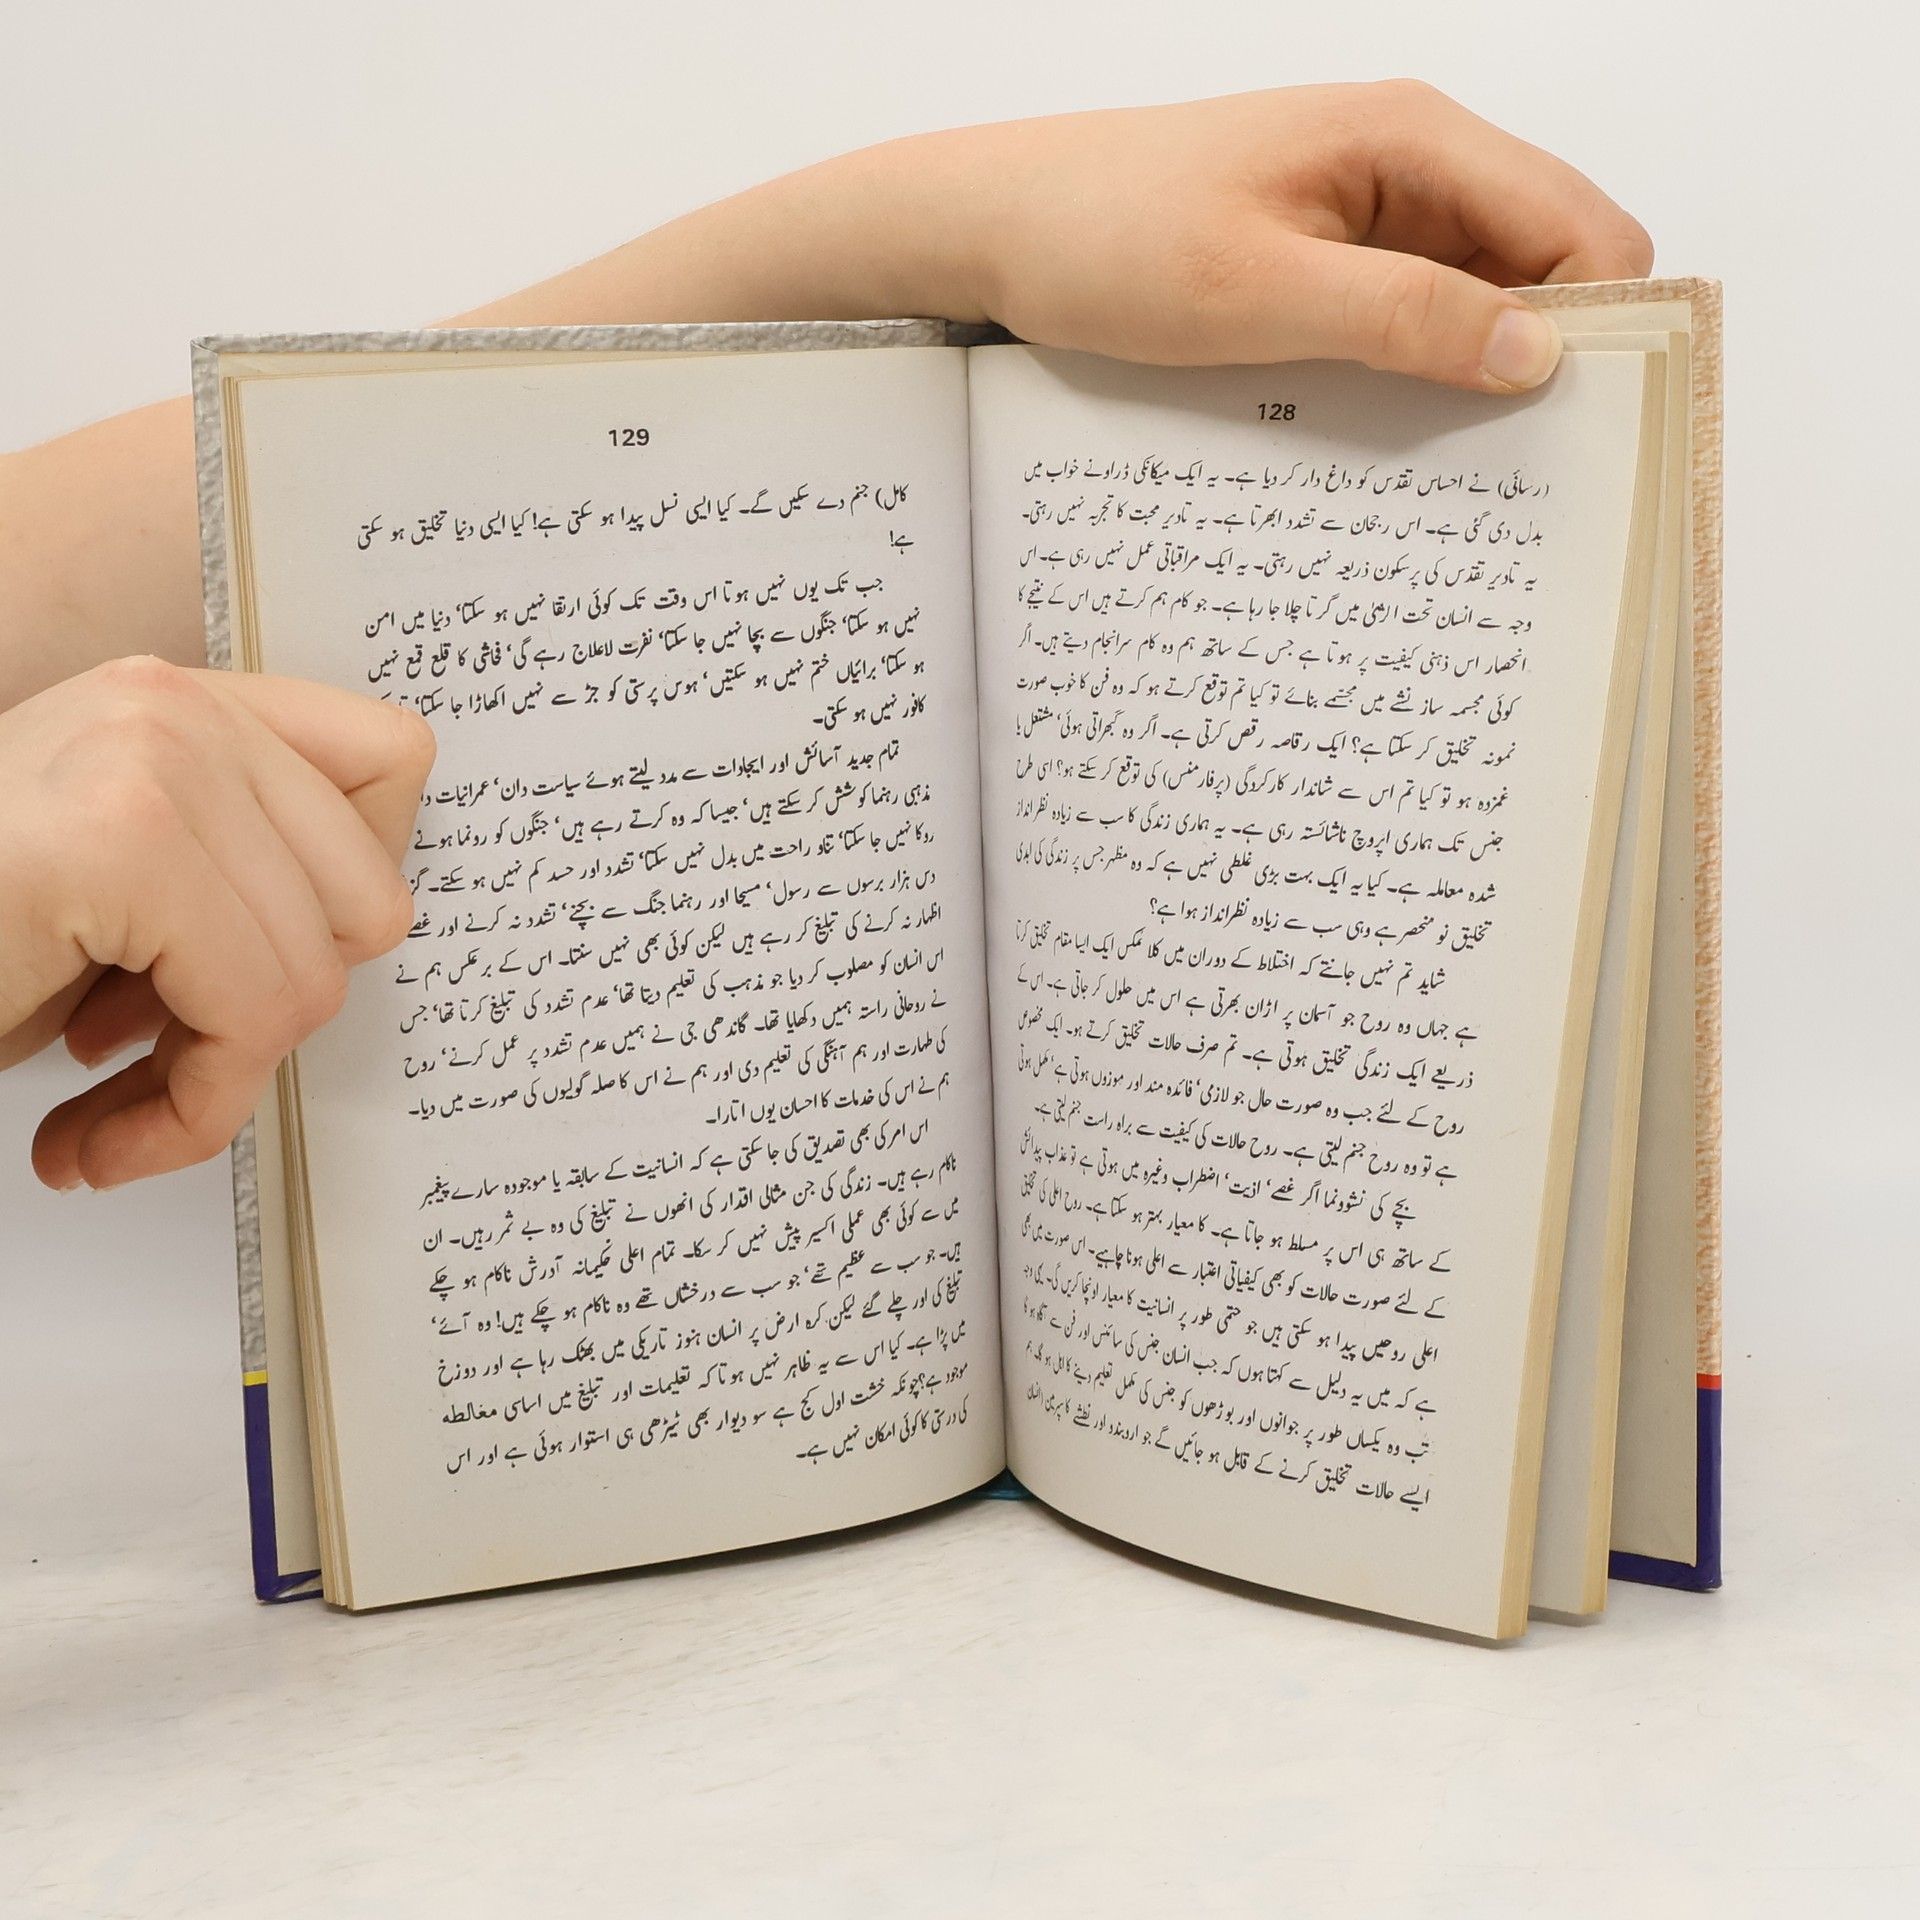 128
(رسائی) نے احساس تقدّس کو داغ دار کر دیا ہے۔ یہ ایک میکانکی ڈراونے خواب میں
بدل دی گئی ہے۔ اس رجحان سے تشدد ابھرتا ہے۔ یہ تادیر محبت کا تجربہ نہیں رہتی۔
یہ تادیر تقدّس کی پرسکون ذریعہ نہیں رہتی۔ یہ ایک مراقباتی عمل نہیں رہی ہے۔ اس
وجہ سے انسان تحت الثریٰ میں گرتا چلا جا رہا ہے۔ جو کام ہم کرتے ہیں اس کے نتیجے کا
انحصار اس ذہنی کیفیت پر ہوتا ہے جس کے ساتھ ہم وہ کام سرانجام دیتے ہیں۔ اگر
کوئی مجسمہ ساز نشے میں مجسّمے بنائے تو کیا تم توقع کرتے ہو کہ وہ فن کا خوب صورت
نمونہ تخلیق کر سکتا ہے؟ ایک رقاصہ رقص کرتی ہے۔ اگر وہ گھبرائی ہوئی‘ مشتعل یا
غمزدہ ہو تو کیا تم اس سے شاندار کارکردگی (پرفارمنس) کی توقع کر سکتے ہو؟ اسی طرح
جنس تک ہماری اپروچ ناشائستہ رہی ہے۔ یہ ہماری زندگی کا سب سے زیادہ نظرانداز
شدہ معاملہ ہے۔ کیا یہ ایک بہت بڑی غلطی نہیں ہے کہ وہ مظہر جس پر زندگی کی ابدی
تخلیق نو منحصر ہے وہی سب سے زیادہ نظرانداز ہوا ہے؟
شاید تم نہیں جانتے کہ اختلاط کے دوران میں کلائمکس ایک ایسا مقام تخلیق کرتا
ہے جہاں وہ روح جو آسمان پر اڑان بھرتی ہے اس میں حلول کر جاتی ہے۔ اس کے
ذریعے ایک زندگی تخلیق ہوتی ہے۔ تم صرف حالات تخلیق کرتے ہو۔ ایک مخصوص
روح کے لئے جب وہ صورت حال جو لازمی‘ فائدہ مند اور موزوں ہوتی ہے‘ مکمل ہوتی
ہے تو وہ روح جنم لیتی ہے۔ روح حالات کی کیفیت سے براہ راست جنم لیتی ہے۔
بچے کی نشوونما اگر غصے‘ اذیت‘ اضطراب وغیرہ میں ہوتی ہے تو عذاب پیدائش
کے ساتھ ہی اس پر مسلط ہو جاتا ہے۔ کا معیار بہتر ہو سکتا ہے۔ روح اعلیٰ کی تخلیق
کے لئے صورت حالات کو بھی کیفیاتی اعتبار سے اعلیٰ ہونا چاہیے۔ اس صورت میں ہی
اعلیٰ روحیں پیدا ہو سکتی ہیں جو حتمی طور پر انسانیت کا معیار اونچا کریں گی۔ یہی وجہ
ہے کہ میں یہ دلیل سے کہتا ہوں کہ جب انسان جنس کی سائنس اور فن سے آگاہ ہو گا
تب وہ یکساں طور پر جوانوں اور بوڑھوں کو جنس کی مکمل تعلیم دینے کا اہل ہو گا۔ ہم
ایسے حالات تخلیق کرنے کے قابل ہو جائیں گے جو اربندو اور نطشے کا سپرمین (انسان
129
کامل) جنم دے سکیں گے۔ کیا ایسی نسل پیدا ہو سکتی ہے! کیا ایسی دنیا تخلیق ہو سکتی
ہے!
جب تک یوں نہیں ہوتا اس وقت تک کوئی ارتقا نہیں ہو سکتا‘ دنیا میں امن
نہیں ہو سکتا‘ جنگوں سے بچا نہیں جا سکتا‘ نفرت لاعلاج رہے گی‘ فحاشی کا قلع قمع نہیں
ہو سکتا‘ برائیاں ختم نہیں ہو سکتیں‘ ہوس پرستی کو جڑ سے نہیں اکھاڑا جا سکتا‘
کافور نہیں ہو سکتی۔
تمام جدید آسائش اور ایجادات سے مدد لیتے ہوئے سیاست دان‘ عمرانیات
مذہبی رہنما کوشش کر سکتے ہیں‘ جیسا کہ وہ کرتے رہے ہیں‘ جنگوں کو رونما ہونے
روکا نہیں جا سکتا‘ تناو راحت میں بدل نہیں سکتا‘ تشدد اور حسد کم نہیں ہو سکتے۔
دس ہزار برسوں سے رسول‘ مسیحا اور رہنما جنگ سے بچنے‘ تشدد نہ کرنے اور غصے
اظہار نہ کرنے کی تبلیغ کر رہے ہیں لیکن کوئی بھی نہیں سنتا۔ اس کے برعکس ہم نے
اس انسان کو مصلوب کر دیا جو مذہب کی تعلیم دیتا تھا‘ عدم تشدد کی تبلیغ کرتا تھا‘ جس
نے روحانی راستہ ہمیں دکھایا تھا۔ گاندھی جی نے ہمیں عدم تشدد پر عمل کرنے‘ روح
کی طہارت اور ہم آہنگی کی تعلیم دی اور ہم نے اس کا صلہ گولیوں کی صورت میں دیا۔
ہم نے اس کی خدمات کا احسان یوں اتارا۔
اس امر کی بھی تصدیق کی جا سکتی ہے کہ انسانیت کے سابقہ یا موجودہ سارے پیغمبر
ناکام رہے ہیں۔ زندگی کی جن مثالی اقدار کی انھوں نے تبلیغ کی وہ بے ثمر رہیں۔ ان
میں سے کوئی بھی عملی اکسیر پیش نہیں کر سکا۔ تمام اعلیٰ حکیمانہ آدرش ناکام ہو چکے
ہیں۔ جو سب سے عظیم تھے‘ جو سب سے درخشاں تھے وہ ناکام ہو چکے ہیں! وہ آئے‘
تبلیغ کی اور چلے گئے لیکن کرہ ارض پر انسان ہنوز تاریکی میں بھٹک رہا ہے اور دوزخ
میں پڑا ہے۔ کیا اس سے یہ ظاہر نہیں ہوتا کہ تعلیمات اور تبلیغ میں اساسی مغالطہ
موجود ہے؟ چونکہ خشت اول کج ہے سو دیوار بھی ٹیڑھی ہی استوار ہوئی ہے اور اس
کی درستی کا کوئی امکان نہیں ہے۔